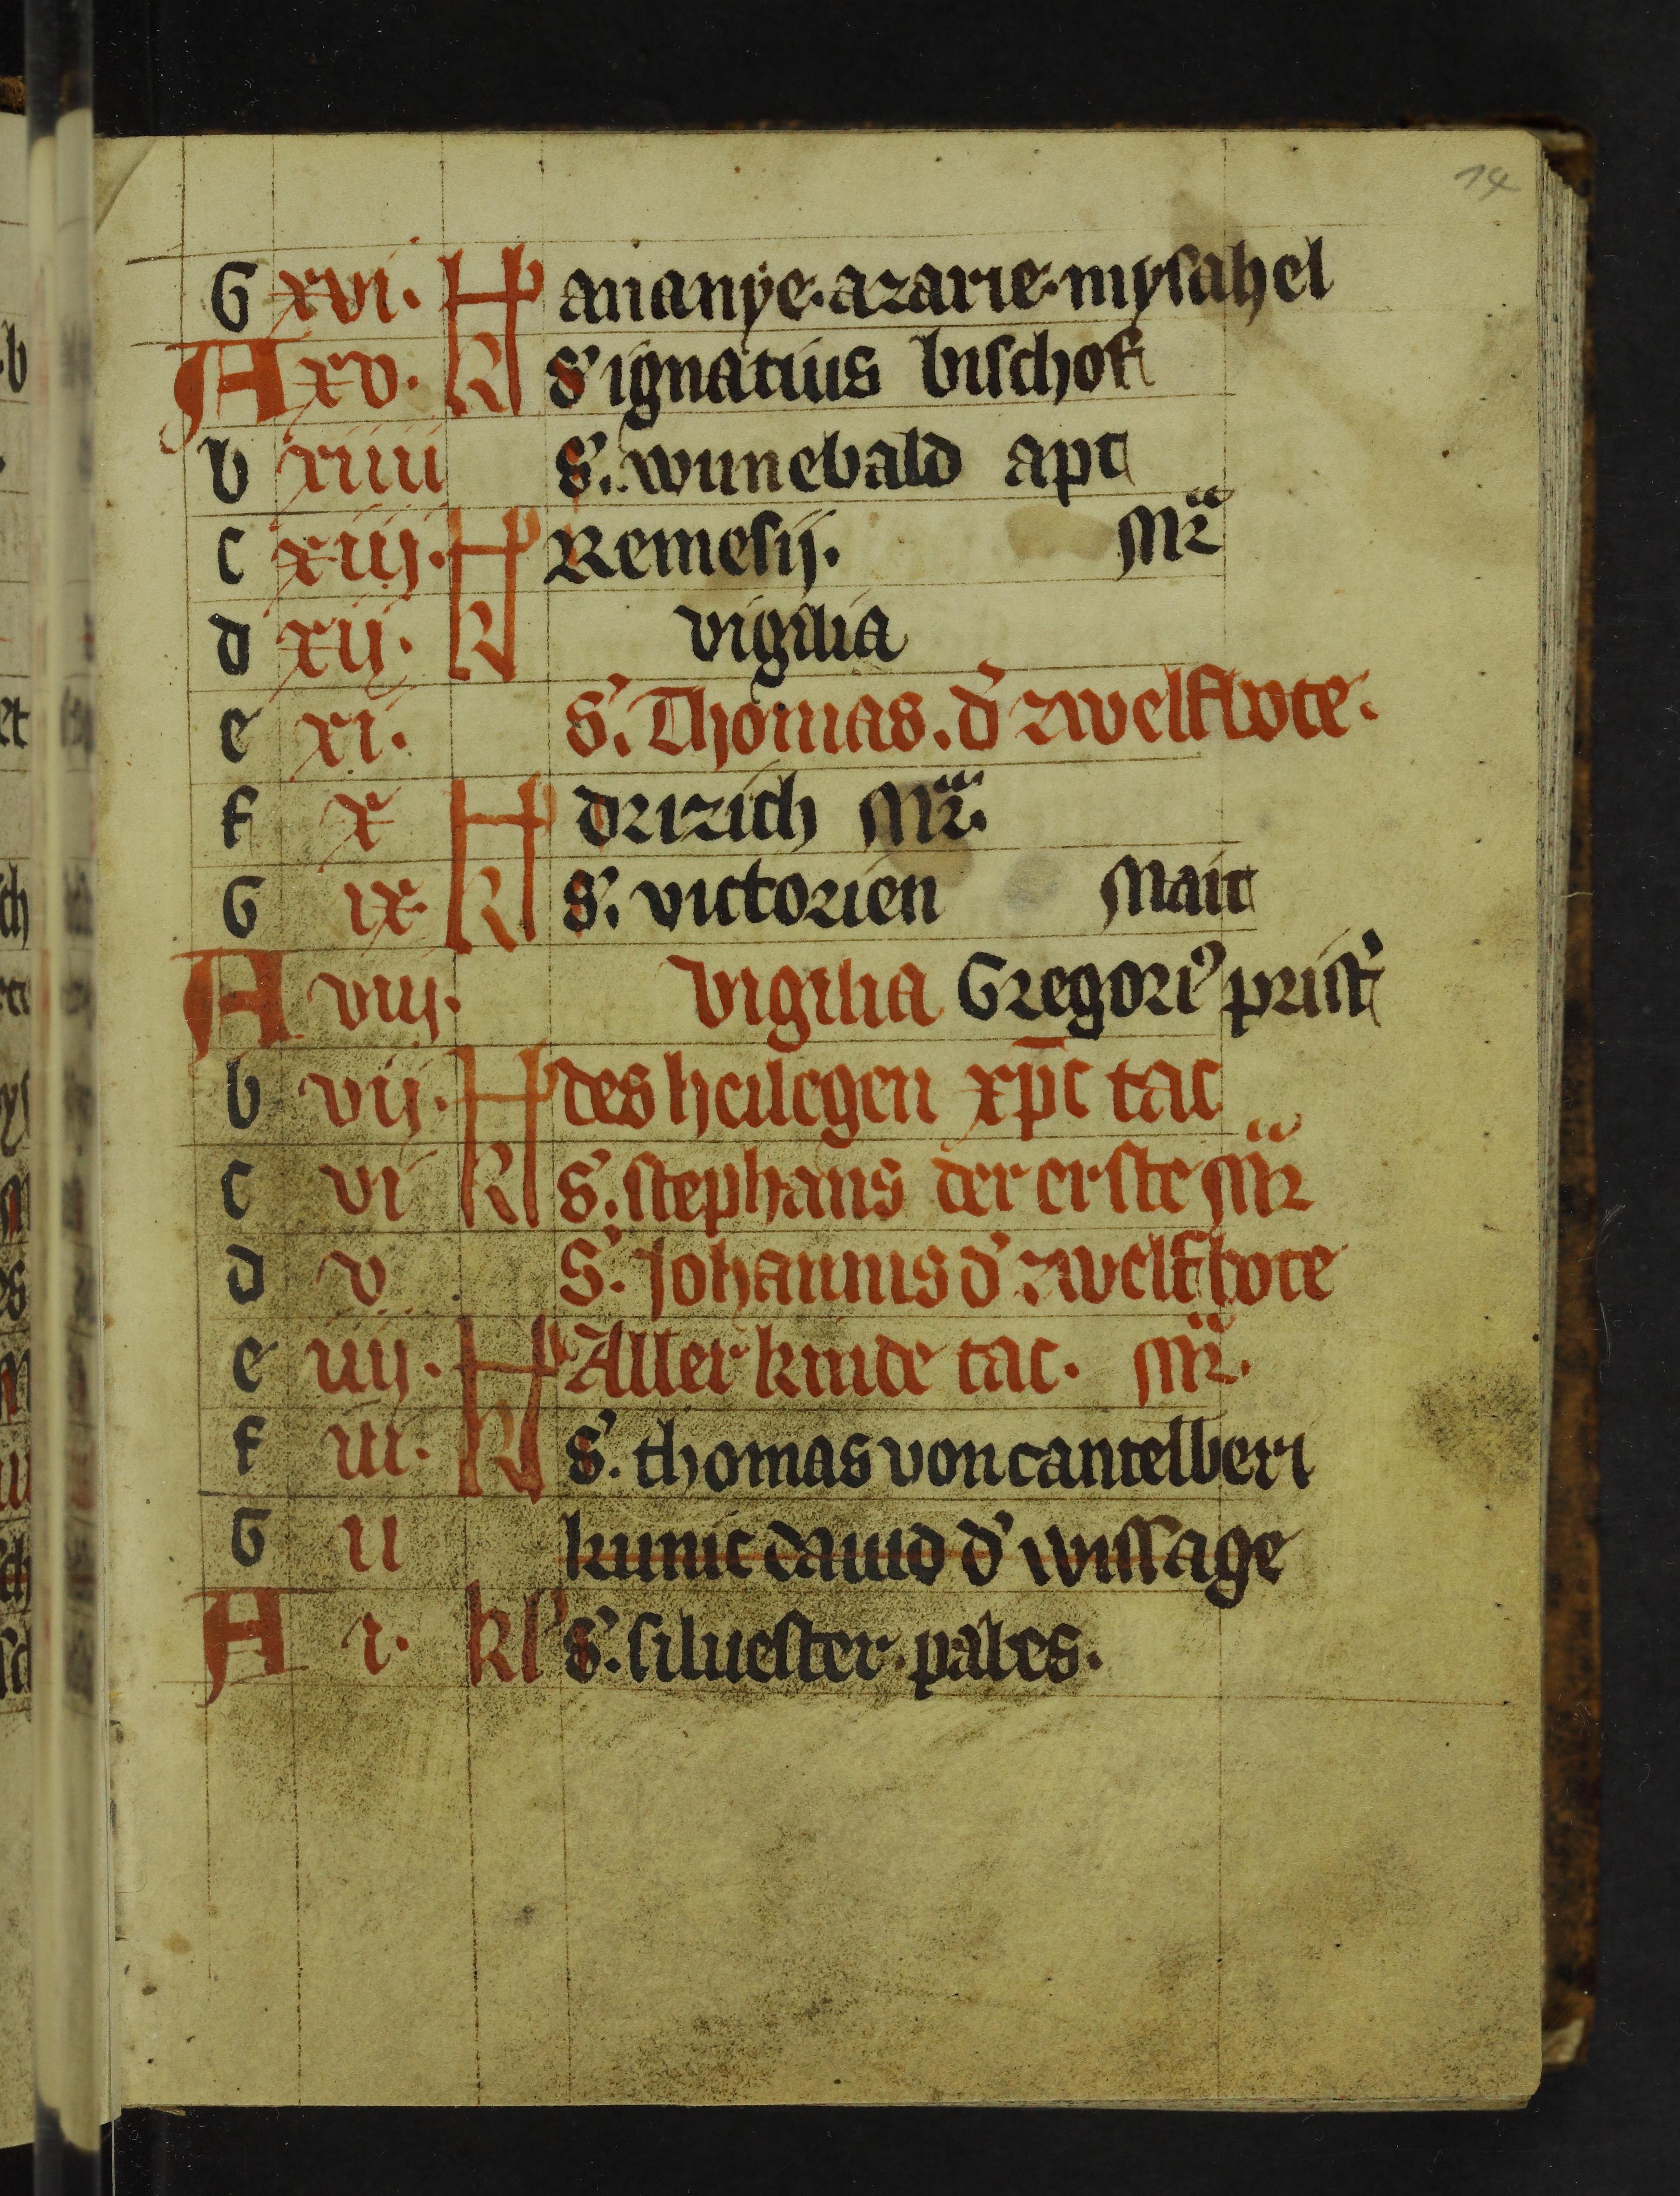 14
G xvi. H ananye. azarie. mysahel
A xv. kl S' ignatius bischof
b xiiii S'. wunebald apt
c xiij. H Remesij. Mr
d xij. kl vigilia
e xi. S'. Thomas. d' zwelfbote.
f x H drizich Mr.
G ix kl S'. victorien Mait
A viij. vigilia Gregori9 prist'
b vij. H des heilegen xpc tac
c vi kl S'. stephans der erste Mr
d v S'. Johannis d' zwelfbote
e iiij. H Aller kinde tac. Mr.
f iii. kl S'. thomas von cantelberi
G ii kunic dauid d' wissage
A i. kl' S'. siluester. pabes.